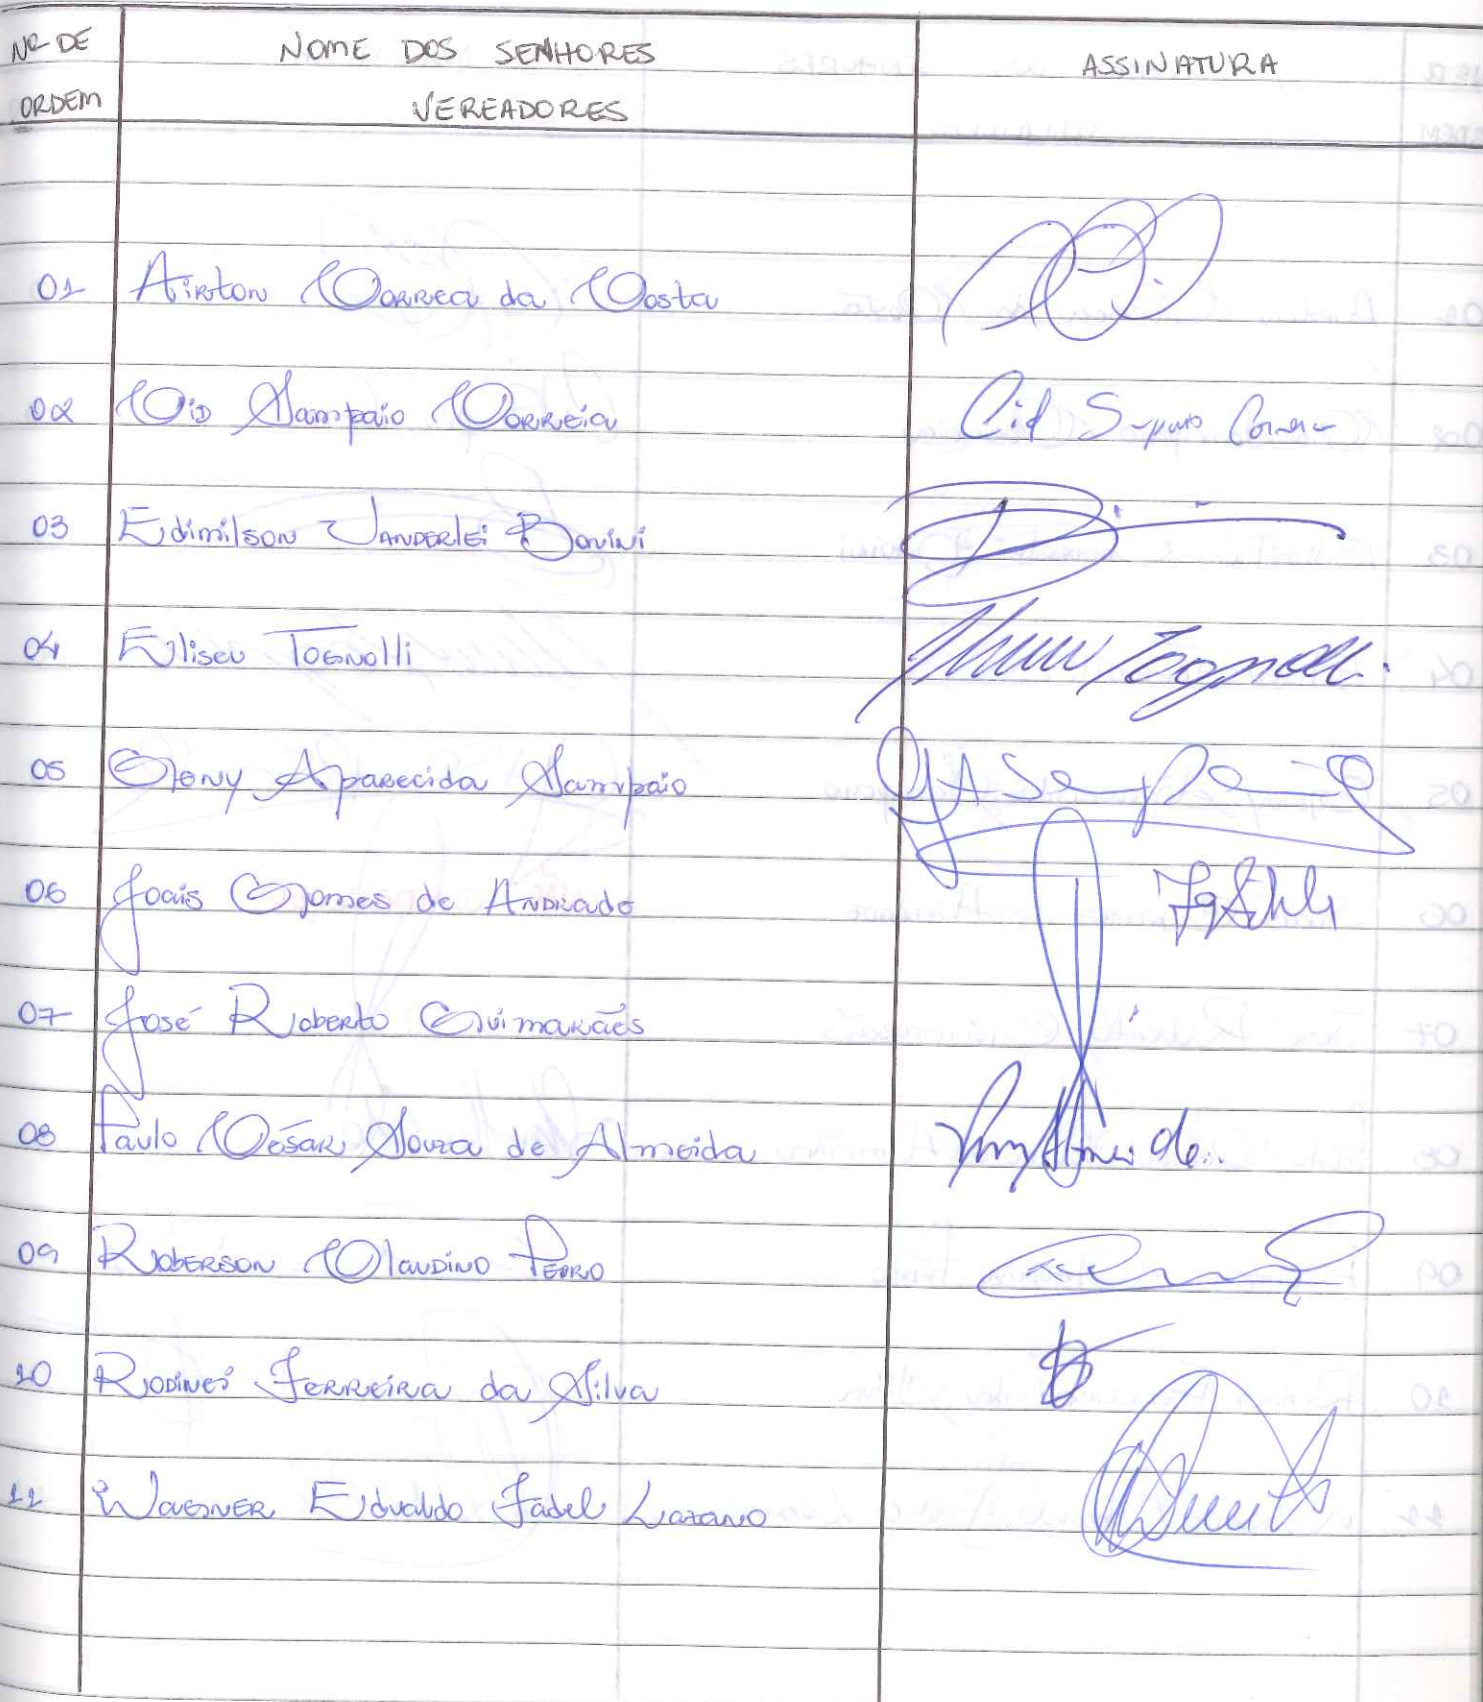 NR DE NOME DOS SENHORES ASSINATURA
ORDEM VEREADORES
01 Airton Correa da Costa
02 Cid Sampaio Correia Cid
03 Edimilson Vanderlei Bonini
04 Eliseu Tognolli Tognolli
05 Geny Aparecida Sampaio
06 Joais Gomes de Andrade
07 José Roberto Guimarães
08 Paulo César Souza de Almeida
09 Roberson Claudino Pedro
10 Rodinei Ferreira da Silva
11 Wagner Edvaldo Fadel Lozano